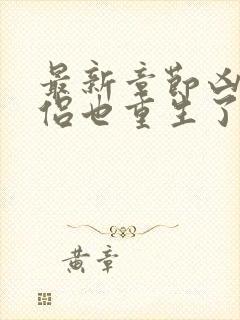 最新章节凶
侣也重生了
黄章